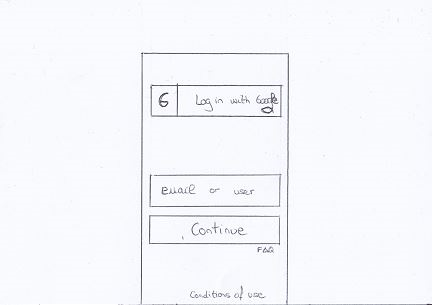 G Log in with Google
email or user
Continue
FAQ
Conditions of use